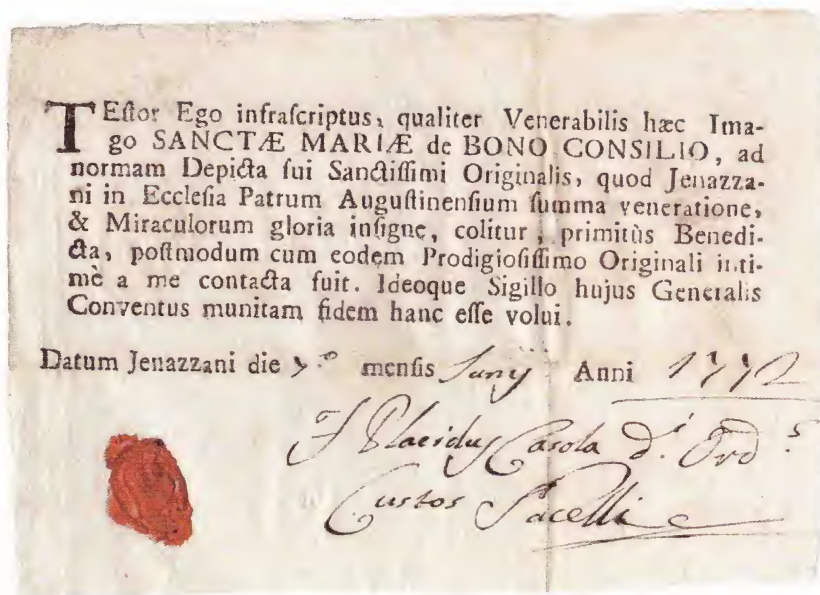 TEſtor Ego infraſcriptus, qualiter Venerabilis hæc Ima-
go SANCTÆ MARIÆ de BONO CONSILIO, ad
normam Depicta ſui Sanctiſſimi Originalis, quod Jenazza-
ni in Eccleſia Patrum Auguſtinenſium ſumma veneratione,
& Miraculorum gloria inſigne, colitur, primitùs Benedi-
cta, poſtmodum cum eodem Prodigioſiſſimo Originali inti-
mè a me contacta fuit. Ideoque Sigillo hujus Generalis
Conventus munitam fidem hanc eſſe volui.
Datum Jenazzani die menſis Junij Anni 1772
F Placidus Casola d.i Ord.s
Custos Sacelli